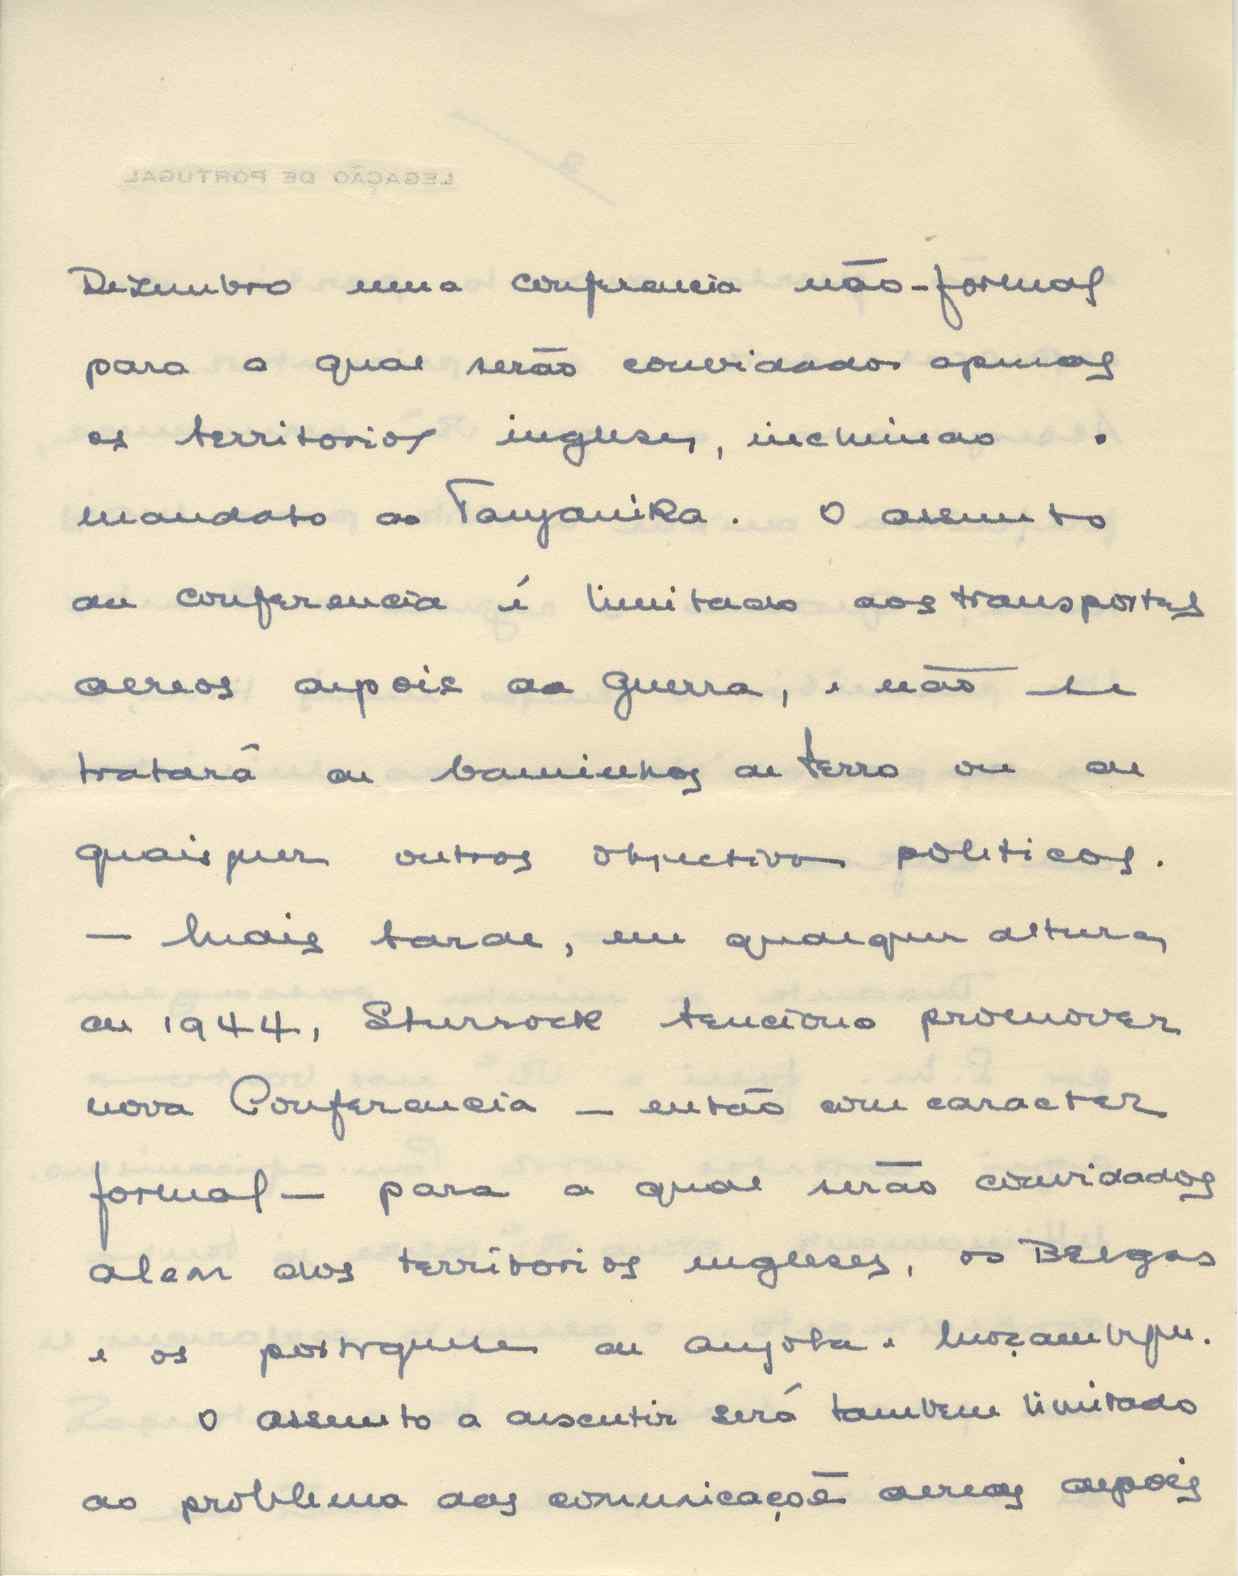 Dezembro uma conferencia não-formal
para a qual serão convidados apenas
os territorios ingleses, incluindo o
mandato do Tanganika. O assunto
da conferencia é limitado aos transportes
aereos depois da guerra, e não se
tratará de Caminhos de ferro ou de
quaisquer outros objectivos politicos.
— Mais tarde, em qualquer altura
de 1944, Sturrock tenciona promover
nova Conferencia — então com caracter
formal — para a qual serão convidados
alem dos territorios ingleses, os Belgas
e os portugueses de Angola e Moçambique.
O assunto a discutir será tambem limitado
ao problema das comunicações aereas depois
LEGAÇÃO DE PORTUGAL